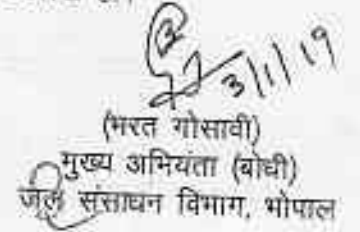 3/1/19
(भरत गोसावी)
मुख्य अभियंता (बोधी)
जल संसाधन विभाग, भोपाल